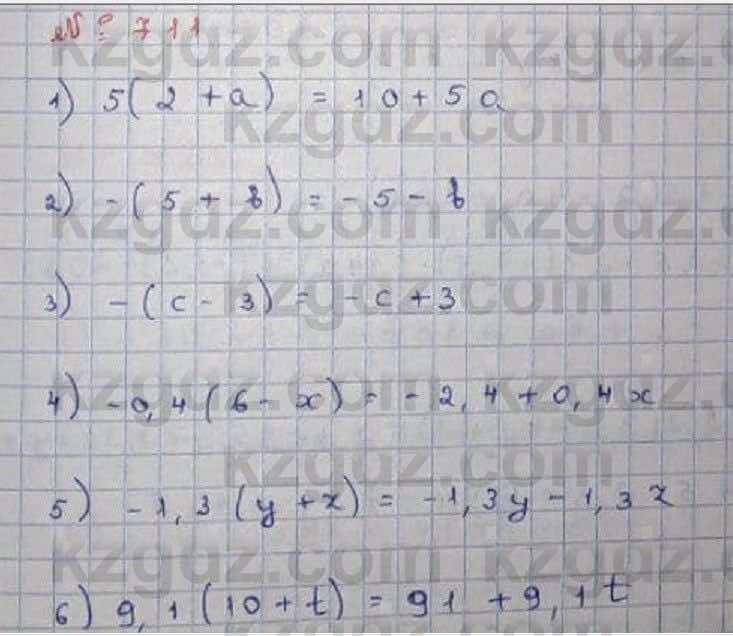 № 711
1) 5(2+a) = 10+5a
2) -(5+b) = -5-b
3) -(c-3) = -c+3
4) -0,4(6-x) = -2,4+0,4x
5) -1,3(y+z) = -1,3y-1,3z
6) 9,1(10+t) = 91+9,1t
kzgdz.com kzgdz.com
kzgdz.com
kzgdz.com kzgdz.com
kzgdz.com
kzgdz.com kzgdz.com
kzgdz.com
kzgdz.com kzgdz.com